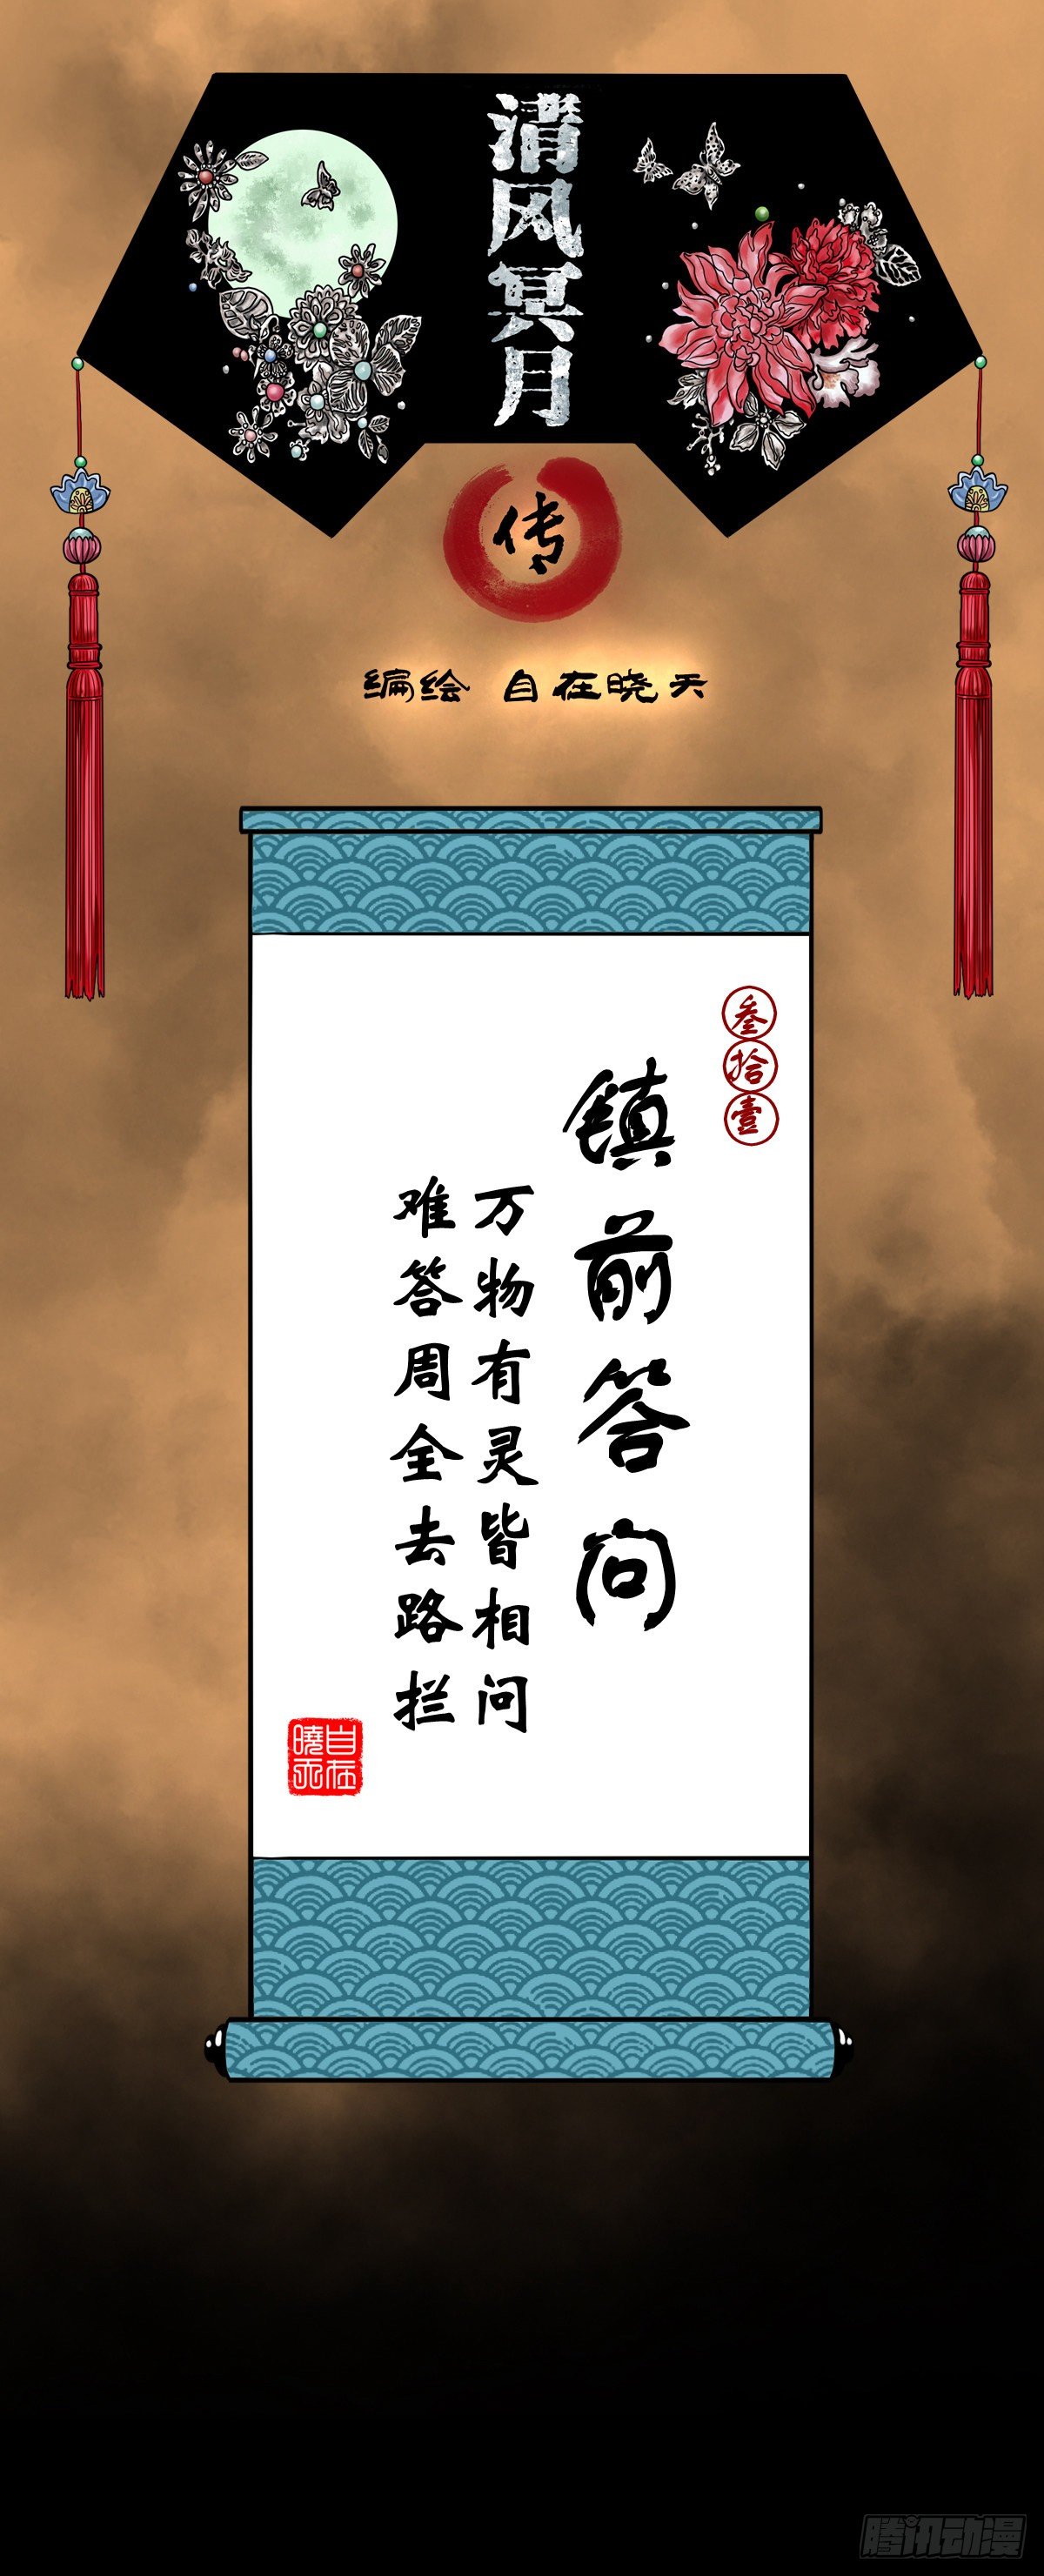 清风冥月
传
编绘 自在晓天
叁拾壹
镇前答问
万物有灵皆相问
难答周全去路拦
自在曉天
腾讯动漫